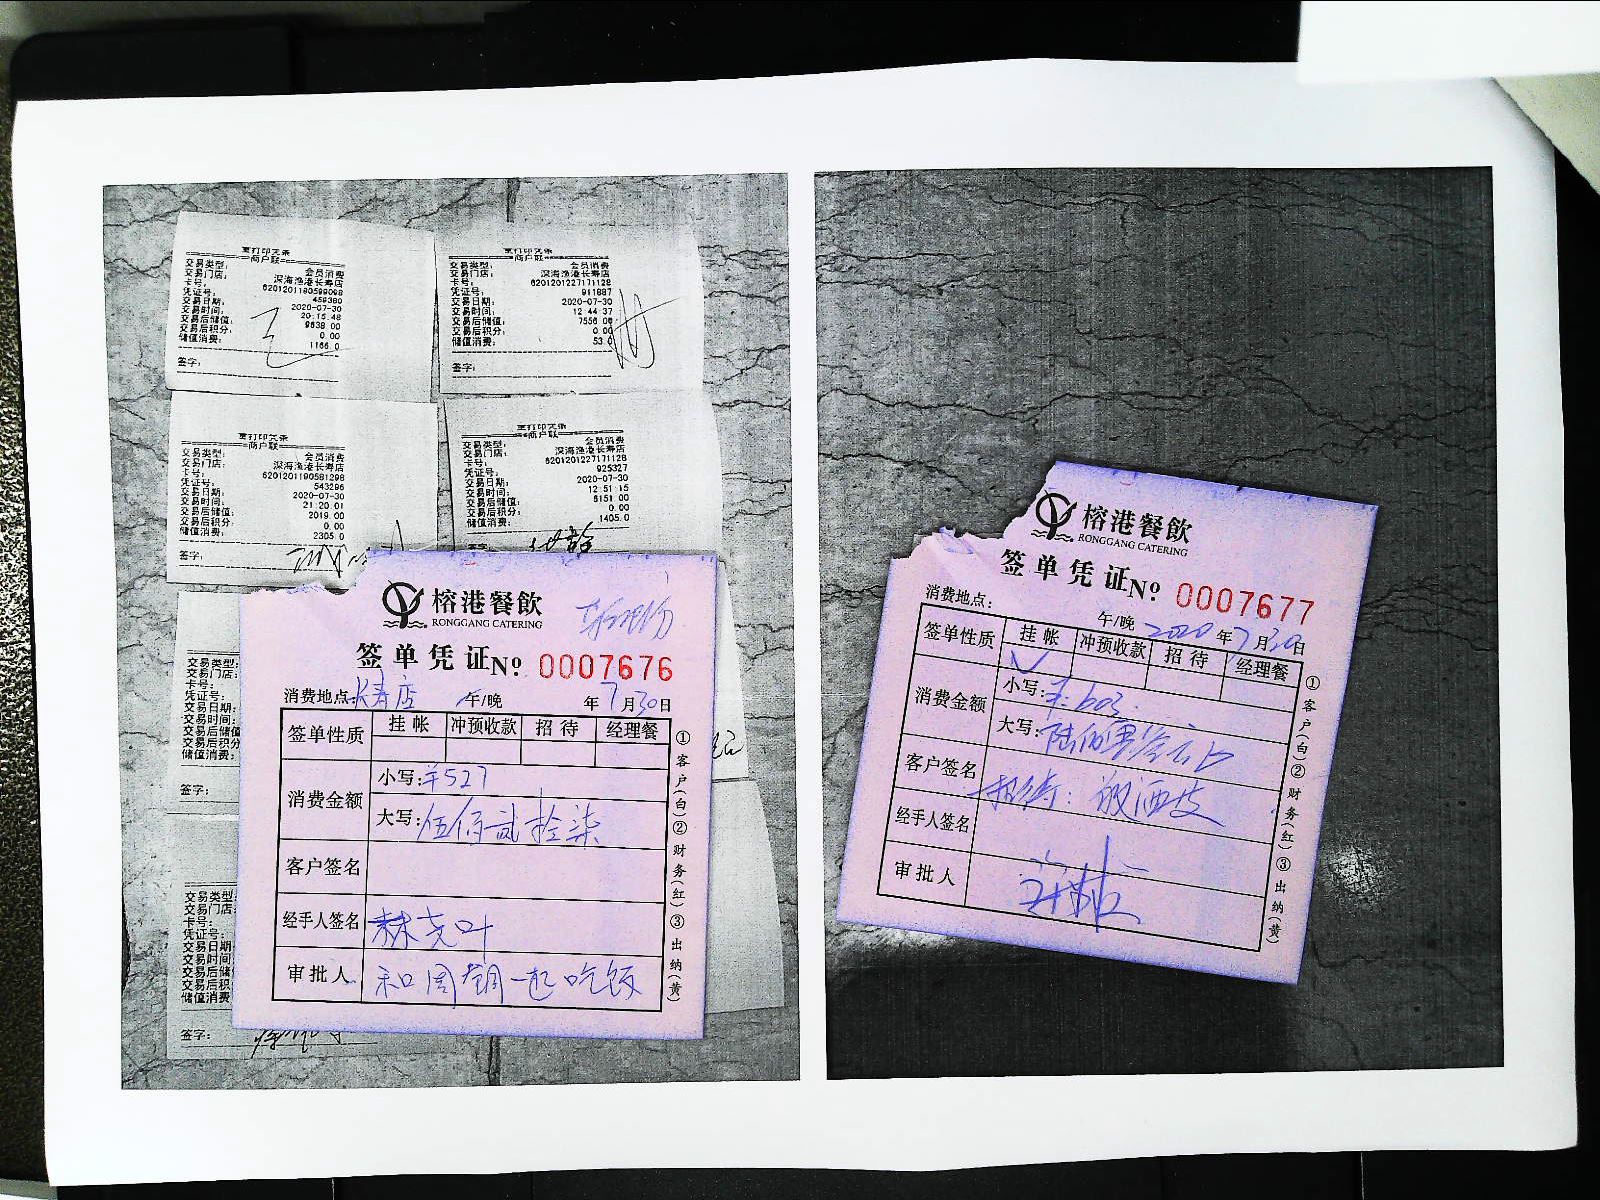 重打印欠条
商户联
交易类型: 会员消费
交易门店: 深海渔港长寿店
卡号: 6201201190599098
凭证号: 459380
交易日期: 2020-07-30
交易时间: 20:15:48
交易后储值: 9638.00
交易后积分: 0.00
储值消费: 1166.0
签字:
重打印欠条
商户联
交易类型: 会员消费
交易门店: 深海渔港长寿店
卡号: 6201201227171128
凭证号: 911887
交易日期: 2020-07-30
交易时间: 12:44:37
交易后储值: 7556.00
交易后积分: 0.00
储值消费: 53.0
签字:
重打印欠条
商户联
交易类型: 会员消费
交易门店: 深海渔港长寿店
卡号: 6201201190581298
凭证号: 543296
交易日期: 2020-07-30
交易时间: 21:20:01
交易后储值: 2019.00
交易后积分: 0.00
储值消费: 2305.0
签字:
重打印欠条
商户联
交易类型: 会员消费
交易门店: 深海渔港长寿店
卡号: 6201201227171128
凭证号: 925327
交易日期: 2020-07-30
交易时间: 12:51:15
交易后储值: 6151.00
交易后积分: 0.00
储值消费: 1405.0
签字:
交易类型:
交易门店:
卡号:
凭证号:
交易日期:
交易时间:
交易后储值
交易后积分
储值消费:
签字:
交易类型:
交易门店:
卡号:
凭证号:
交易日期:
交易时间:
交易后储值
交易后积分
储值消费
签字:
榕港餐飲
RONGGANG CATERING
签单凭证 Nº 0007676
消费地点: 长寿店 午/晚 年7月30日
签单性质 挂帐 冲预收款 招待 经理餐
消费金额 小写: ¥527
大写: 伍佰贰拾柒
客户签名
经手人签名
审批人 和周 一起吃饭
①客户(白)②财务(红)③出纳(黄)
榕港餐飲
RONGGANG CATERING
签单凭证 Nº 0007677
消费地点: 午/晚 2020年7月30日
签单性质 挂帐 冲预收款 招待 经理餐
✓
消费金额 小写: ¥603.
大写: 陆佰零叁元
客户签名 招待:
经手人签名
审批人
①客户(白)②财务(红)③出纳(黄)